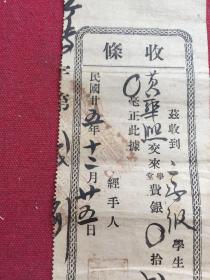 收條
茲收到
級學生
黃華
交來學堂費銀〇拾
〇毫正此據
經手人
民國廿五年十二月廿五日
字第